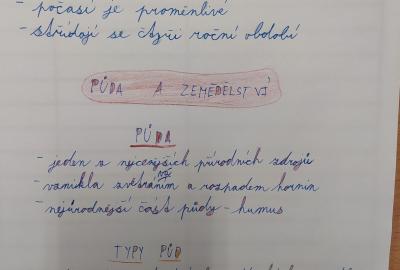 - počasí je proměnlivé
- střídají se čtyři roční období
PŮDA A ZEMĚDĚLSTVÍ
PŮDA
- jeden z nejcenějších přírodních zdrojů
- vznikla zvětráním a rozpadem hornin
- nejúrodnější část půdy - humus
TYPY PŮD